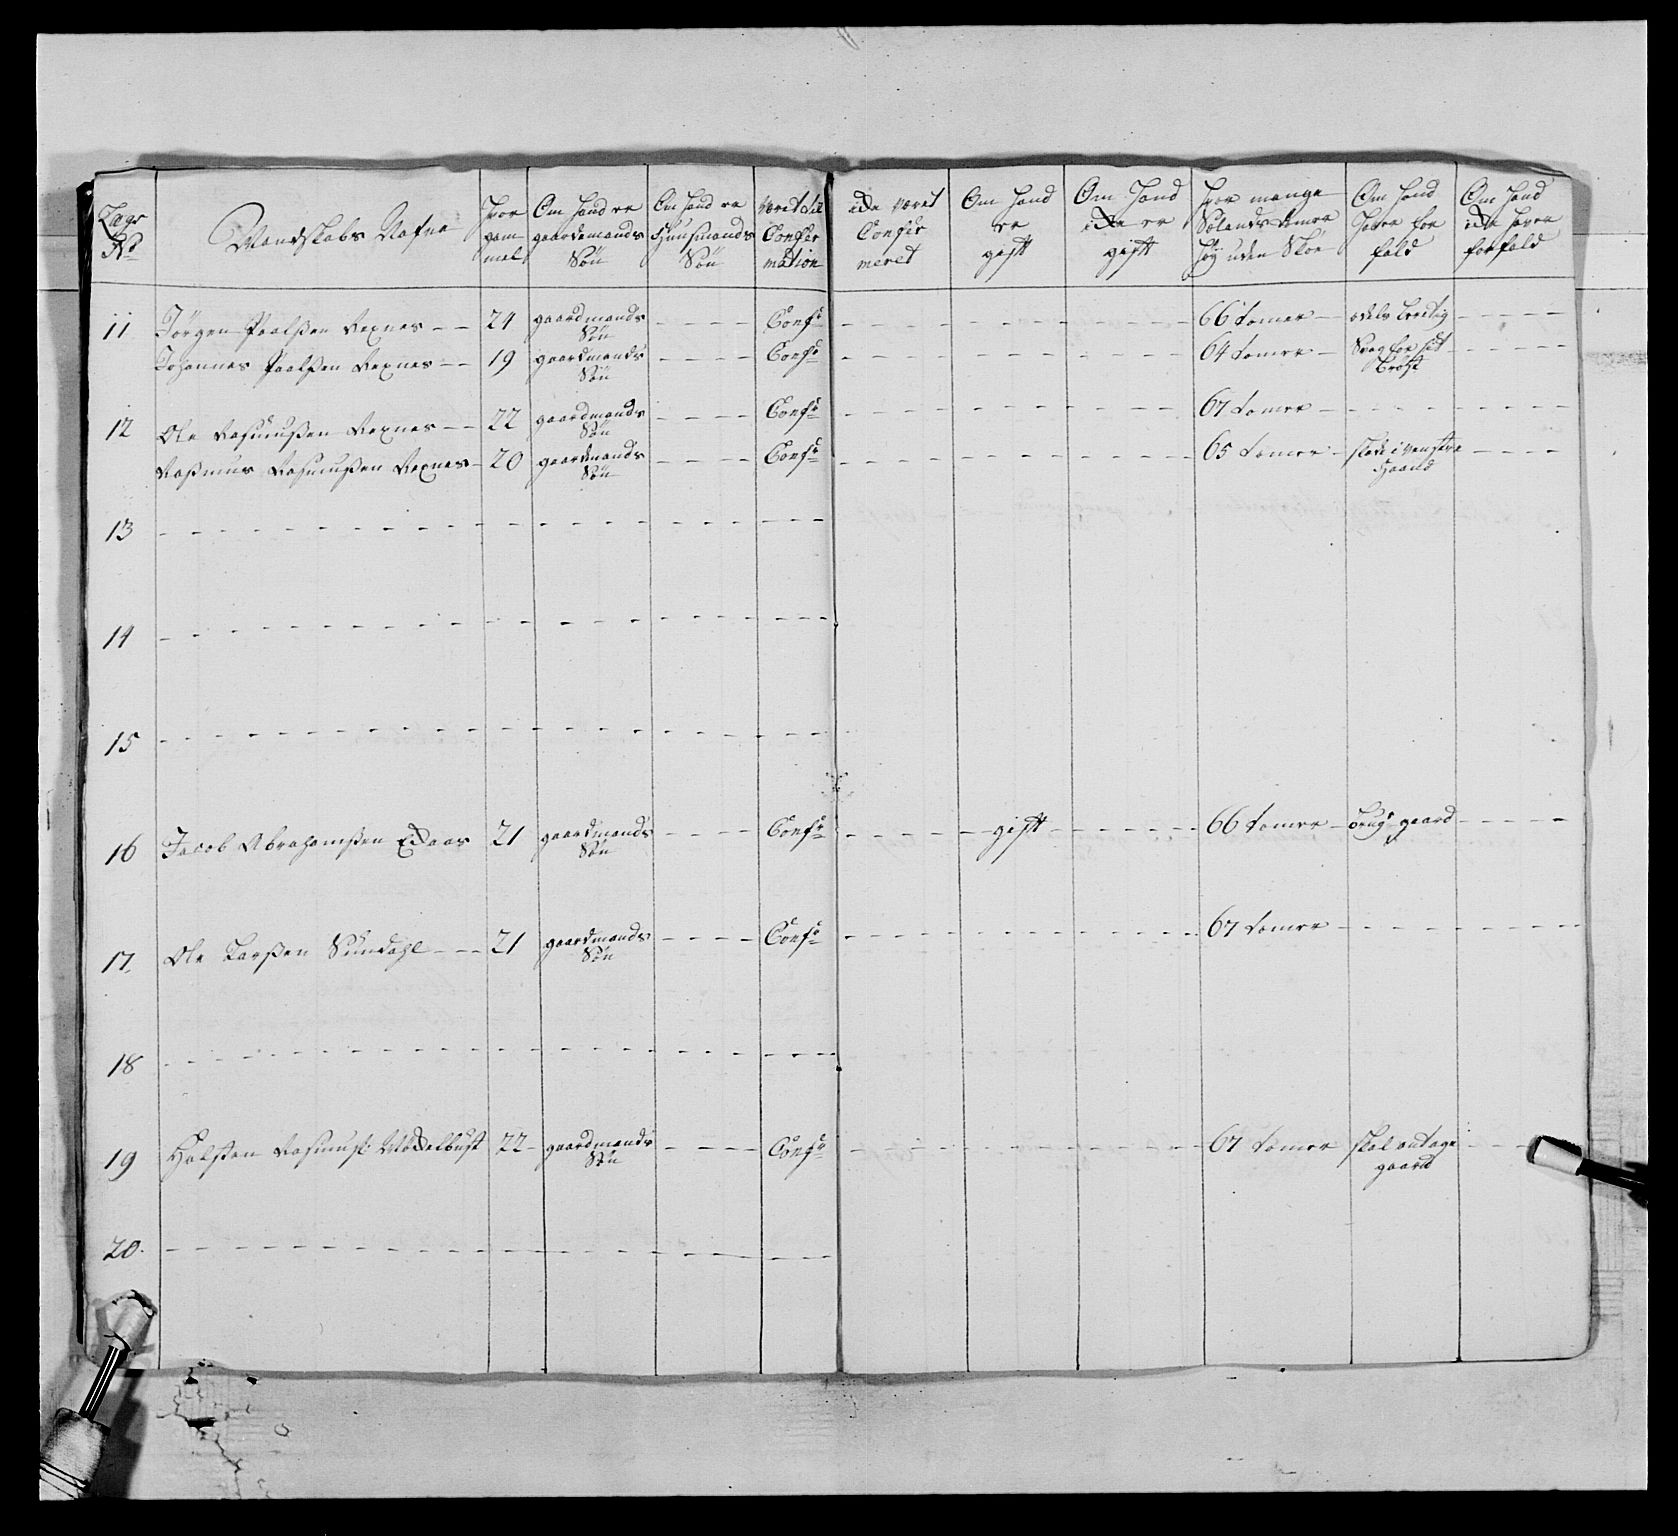 Lægs No | Mandskabs Nafne | Hvor gammel | Om hand er gaardemands Søn | Om hand er Huusmands Søn | Været til Confirmation | icke været Confirmeret | Om hand er gift | Om hand icke er gift | Hvor mange Sælands tomer høÿ uden Skoe | Om hand haver forfald | Om hand icke haver forfald
11 | Jörgen Paalßen Rexnes | 24 | gaardmands Søn | Confr | 66 tomer | odels berettig
Johannes Paalßen Rexnes | 19 | gaardmands Søn | Confr | 64 tomer | Svag for sit brÿst
12 | Ole Rasmusßen Rexnes | 22 | gaardmands Søn | Confr | 67 tomer
Rasmus Rasmusßen Rexnes | 20 | gaardmands Søn | Confr | 65 tomer | skade i venstre Haand
13
14
15
16 | Jacob Abrahamßen | 21 | gaardmands Søn | Confr | gift | 66 tomer | brugr gaard
17 | Ole Larßen Sundahl | 21 | gaardmands Søn | Confr | 67 tomer
18
19 | Holsten Rasmusß: Möckelbust | 22 | gaardmands Søn | Confr | 67 tomer | skal antage gaard
20